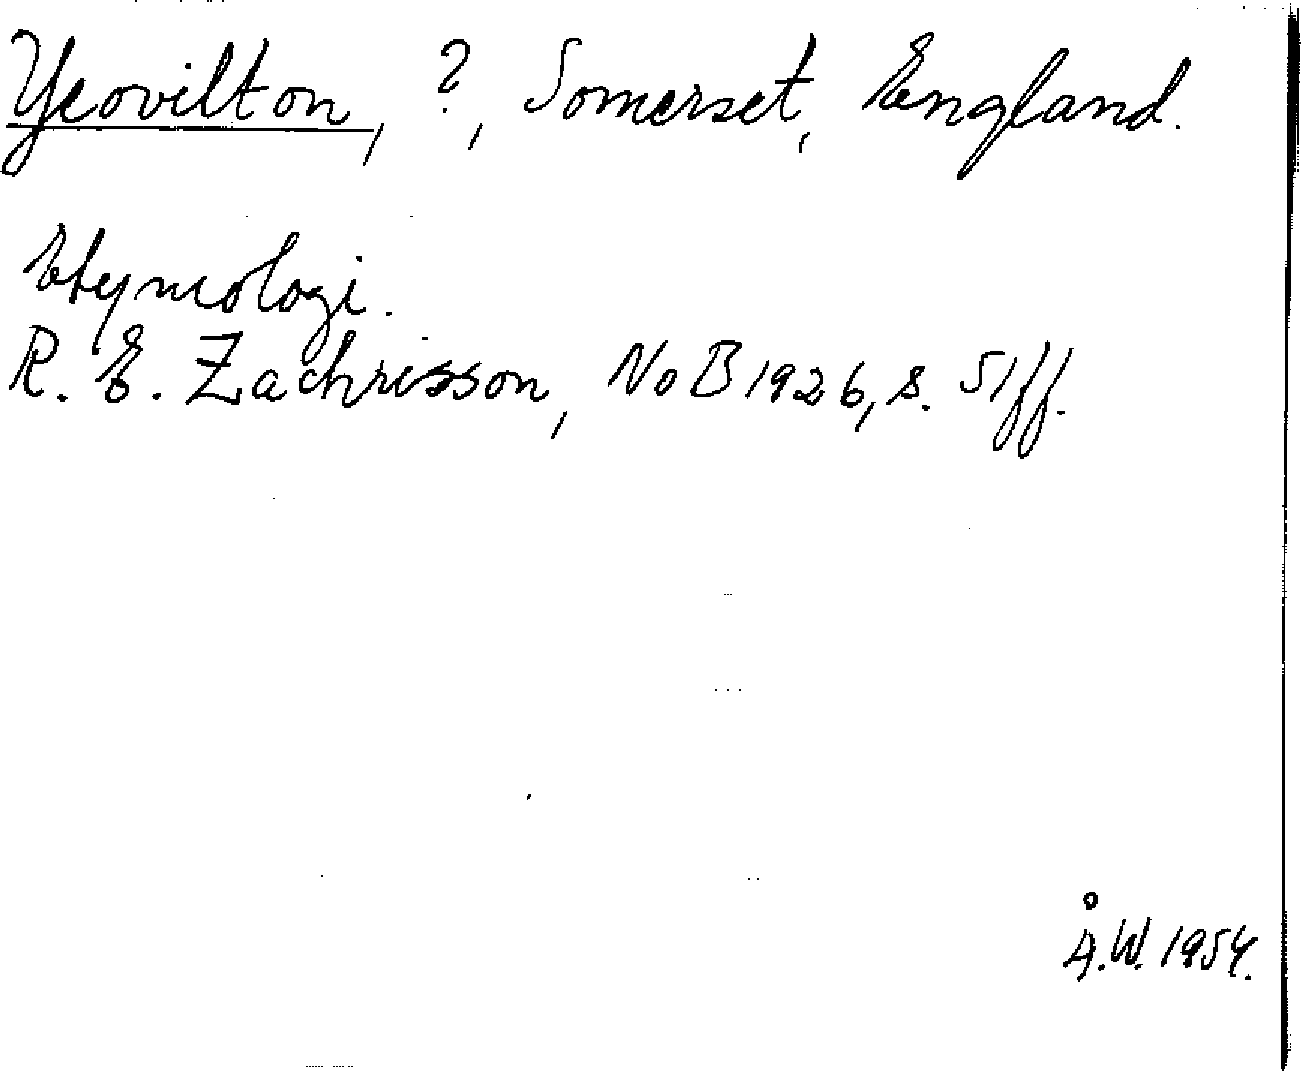 Yeovilton, ?, Somerset, England.
Etymologi.
R. E. Zachrisson, NoB 1926, s. 51ff.
Å.W. 1954.